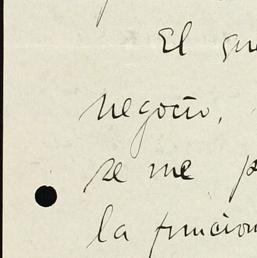 El que
negocio,
se me p
la funcion